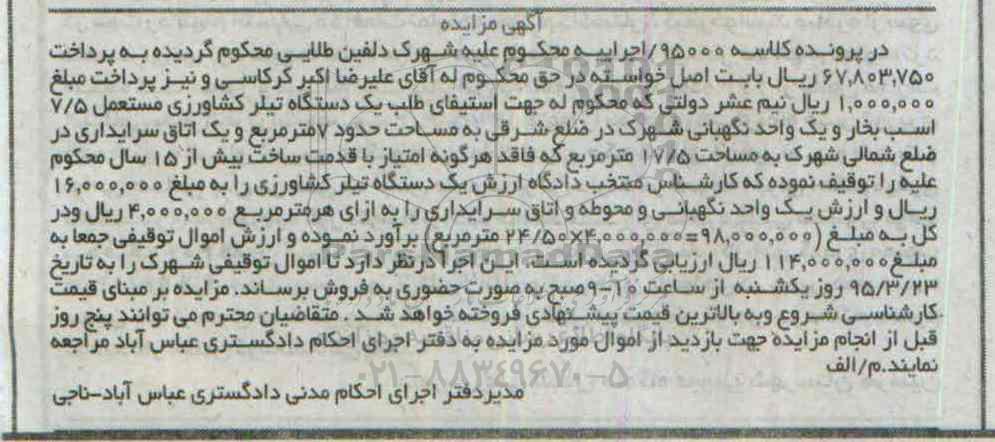 آگهی مزایده
در پرونده کلاسه ۹۵۰۰۰/اجراییه محکوم علیه شهرک دلفین طلایی محکوم گردیده به پرداخت
۶۷,۸۰۳,۷۵۰ ریال بابت اصل خواسته در حق محکوم له آقای علیرضا اکبر کرکاسی و نیز پرداخت مبلغ
۱,۰۰۰,۰۰۰ ریال نیم عشر دولتی که محکوم له جهت استیفای طلب یک دستگاه تیلر کشاورزی مستعمل ۷/۵
اسب بخار و یک واحد نگهبانی شهرک در ضلع شرقی به مساحت حدود ۷مترمربع و یک اتاق سرایداری در
ضلع شمالی شهرک به مساحت ۱۷/۵ مترمربع که فاقد هرگونه امتیاز با قدمت ساخت بیش از ۱۵ سال محکوم
علیه را توقیف نموده که کارشناس منتخب دادگاه ارزش یک دستگاه تیلر کشاورزی را به مبلغ ۱۶,۰۰۰,۰۰۰
ریال و ارزش یک واحد نگهبانی و محوطه و اتاق سرایداری را به ازای هرمترمربع ۴,۰۰۰,۰۰۰ ریال ودر
کل به مبلغ (۹۸,۰۰۰,۰۰۰=۲۴/۵۰×۴,۰۰۰,۰۰۰ مترمربع) برآورد نموده و ارزش اموال توقیفی جمعا به
مبلغ۱۱۴,۰۰۰,۰۰۰ ریال ارزیابی گردیده است. این اجرا درنظر دارد تا اموال توقیفی شهرک را به تاریخ
۹۵/۳/۲۳ روز یکشنبه از ساعت ۱۰-۹صبح به صورت حضوری به فروش برساند. مزایده بر مبنای قیمت
کارشناسی شروع وبه بالاترین قیمت پیشنهادی فروخته خواهد شد. متقاضیان محترم می توانند پنج روز
قبل از انجام مزایده جهت بازدید از اموال مورد مزایده به دفتر اجرای احکام دادگستری عباس آباد مراجعه
نمایند.م/الف
۰۲۱-۸۸۳۴۹۶۷۰-۵
مدیردفتر اجرای احکام مدنی دادگستری عباس آباد-ناجی